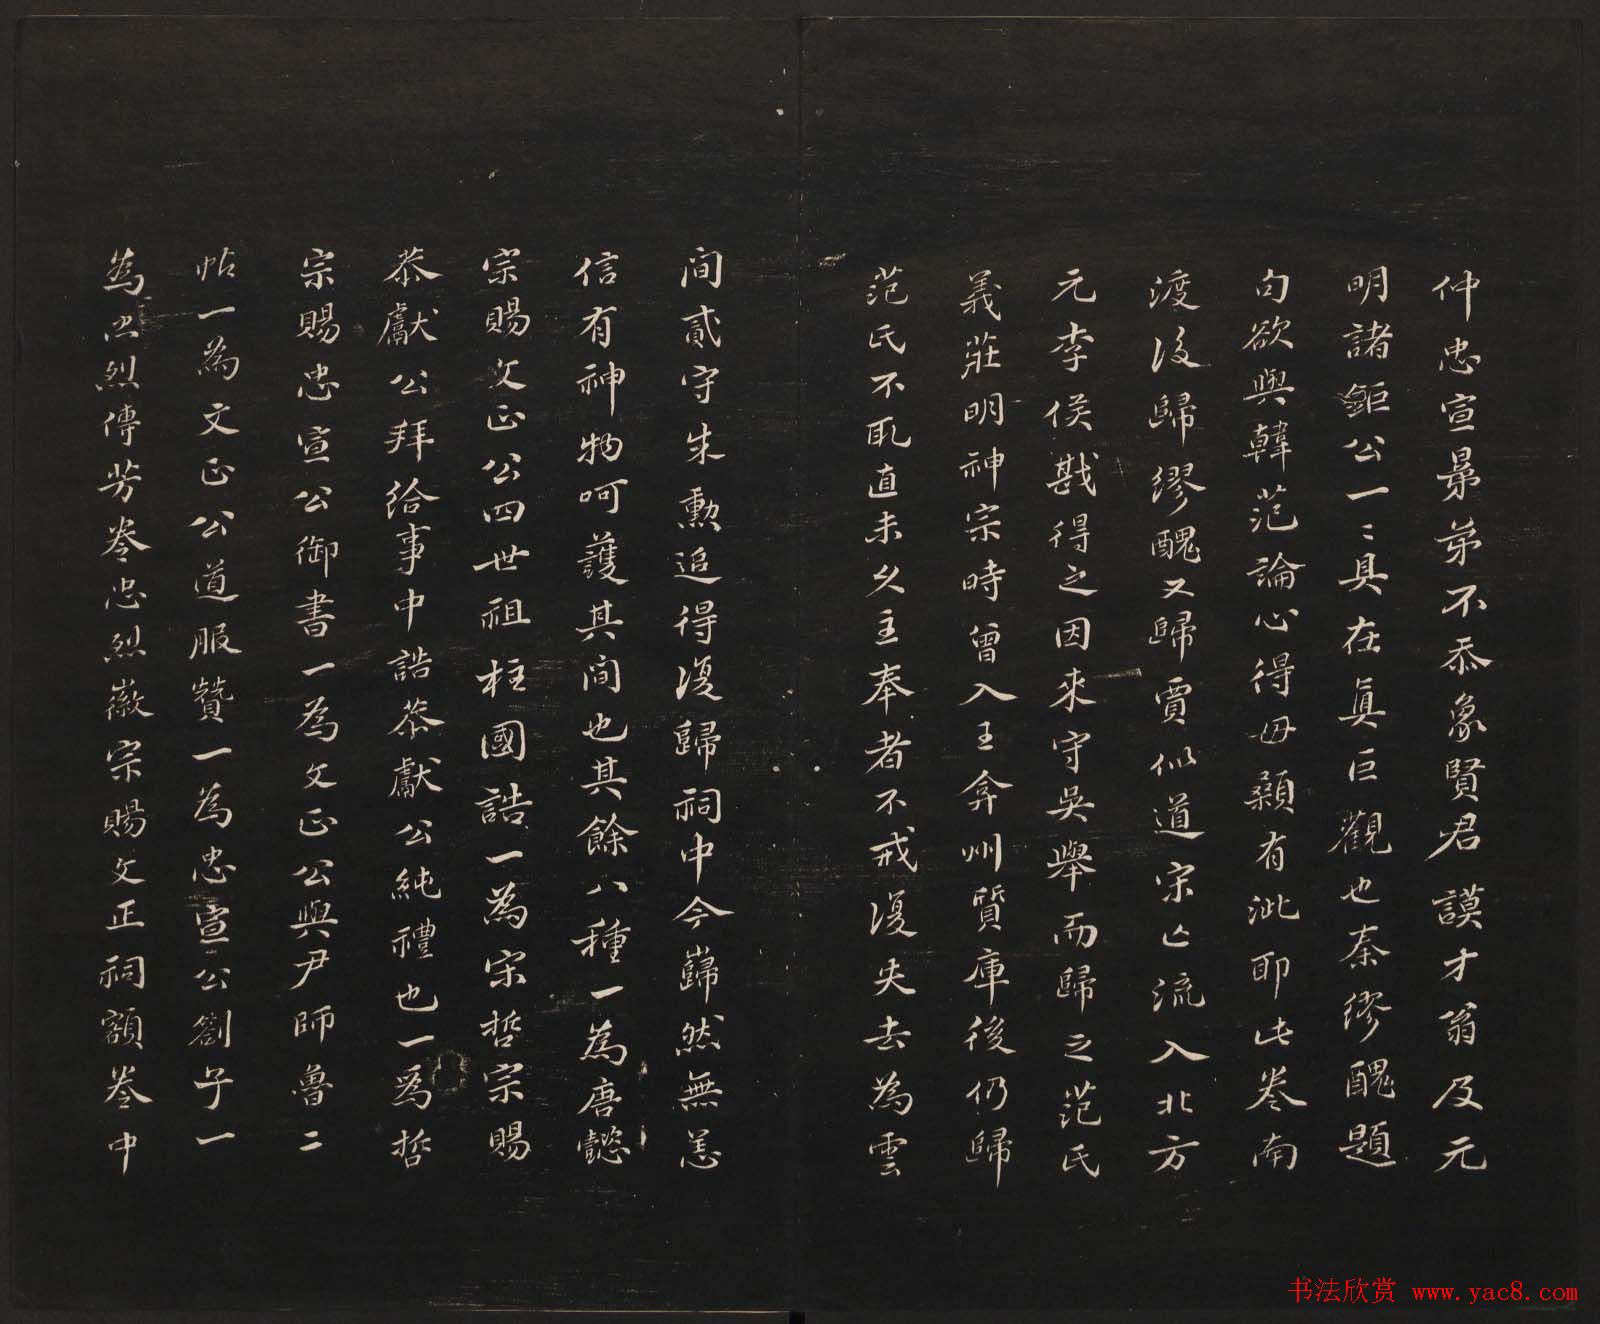 仲忠宣昻弟不忝象賢君謨才翁及元
明諸鉅公一〻具在真巨觀也秦繆醜題
句欲與韓范論心得毋顙有泚耶此卷南
渡後歸繆醜又歸賈似道宋亡流入北方
元李侯戡得之因來守吳舉而歸之范氏
義莊明神宗時曾入王弇州質庫後仍歸
范氏不取直未久主奉者不戒復失去為雲
间貳守朱勳追得復歸祠中今巋然無恙
信有神物呵護其间也其餘八種一為唐懿
宗賜文正公四世祖柱國誥一為宋哲宗賜
恭獻公拜給事中誥恭獻公純禮也一為哲
宗賜忠宣公御書一為文正公與尹師魯二
帖一為文正公道服贊一為忠宣公劄子一
為忠烈傳芳卷忠烈徽宗賜文正祠額卷中
书法欣赏 www.yac8.com